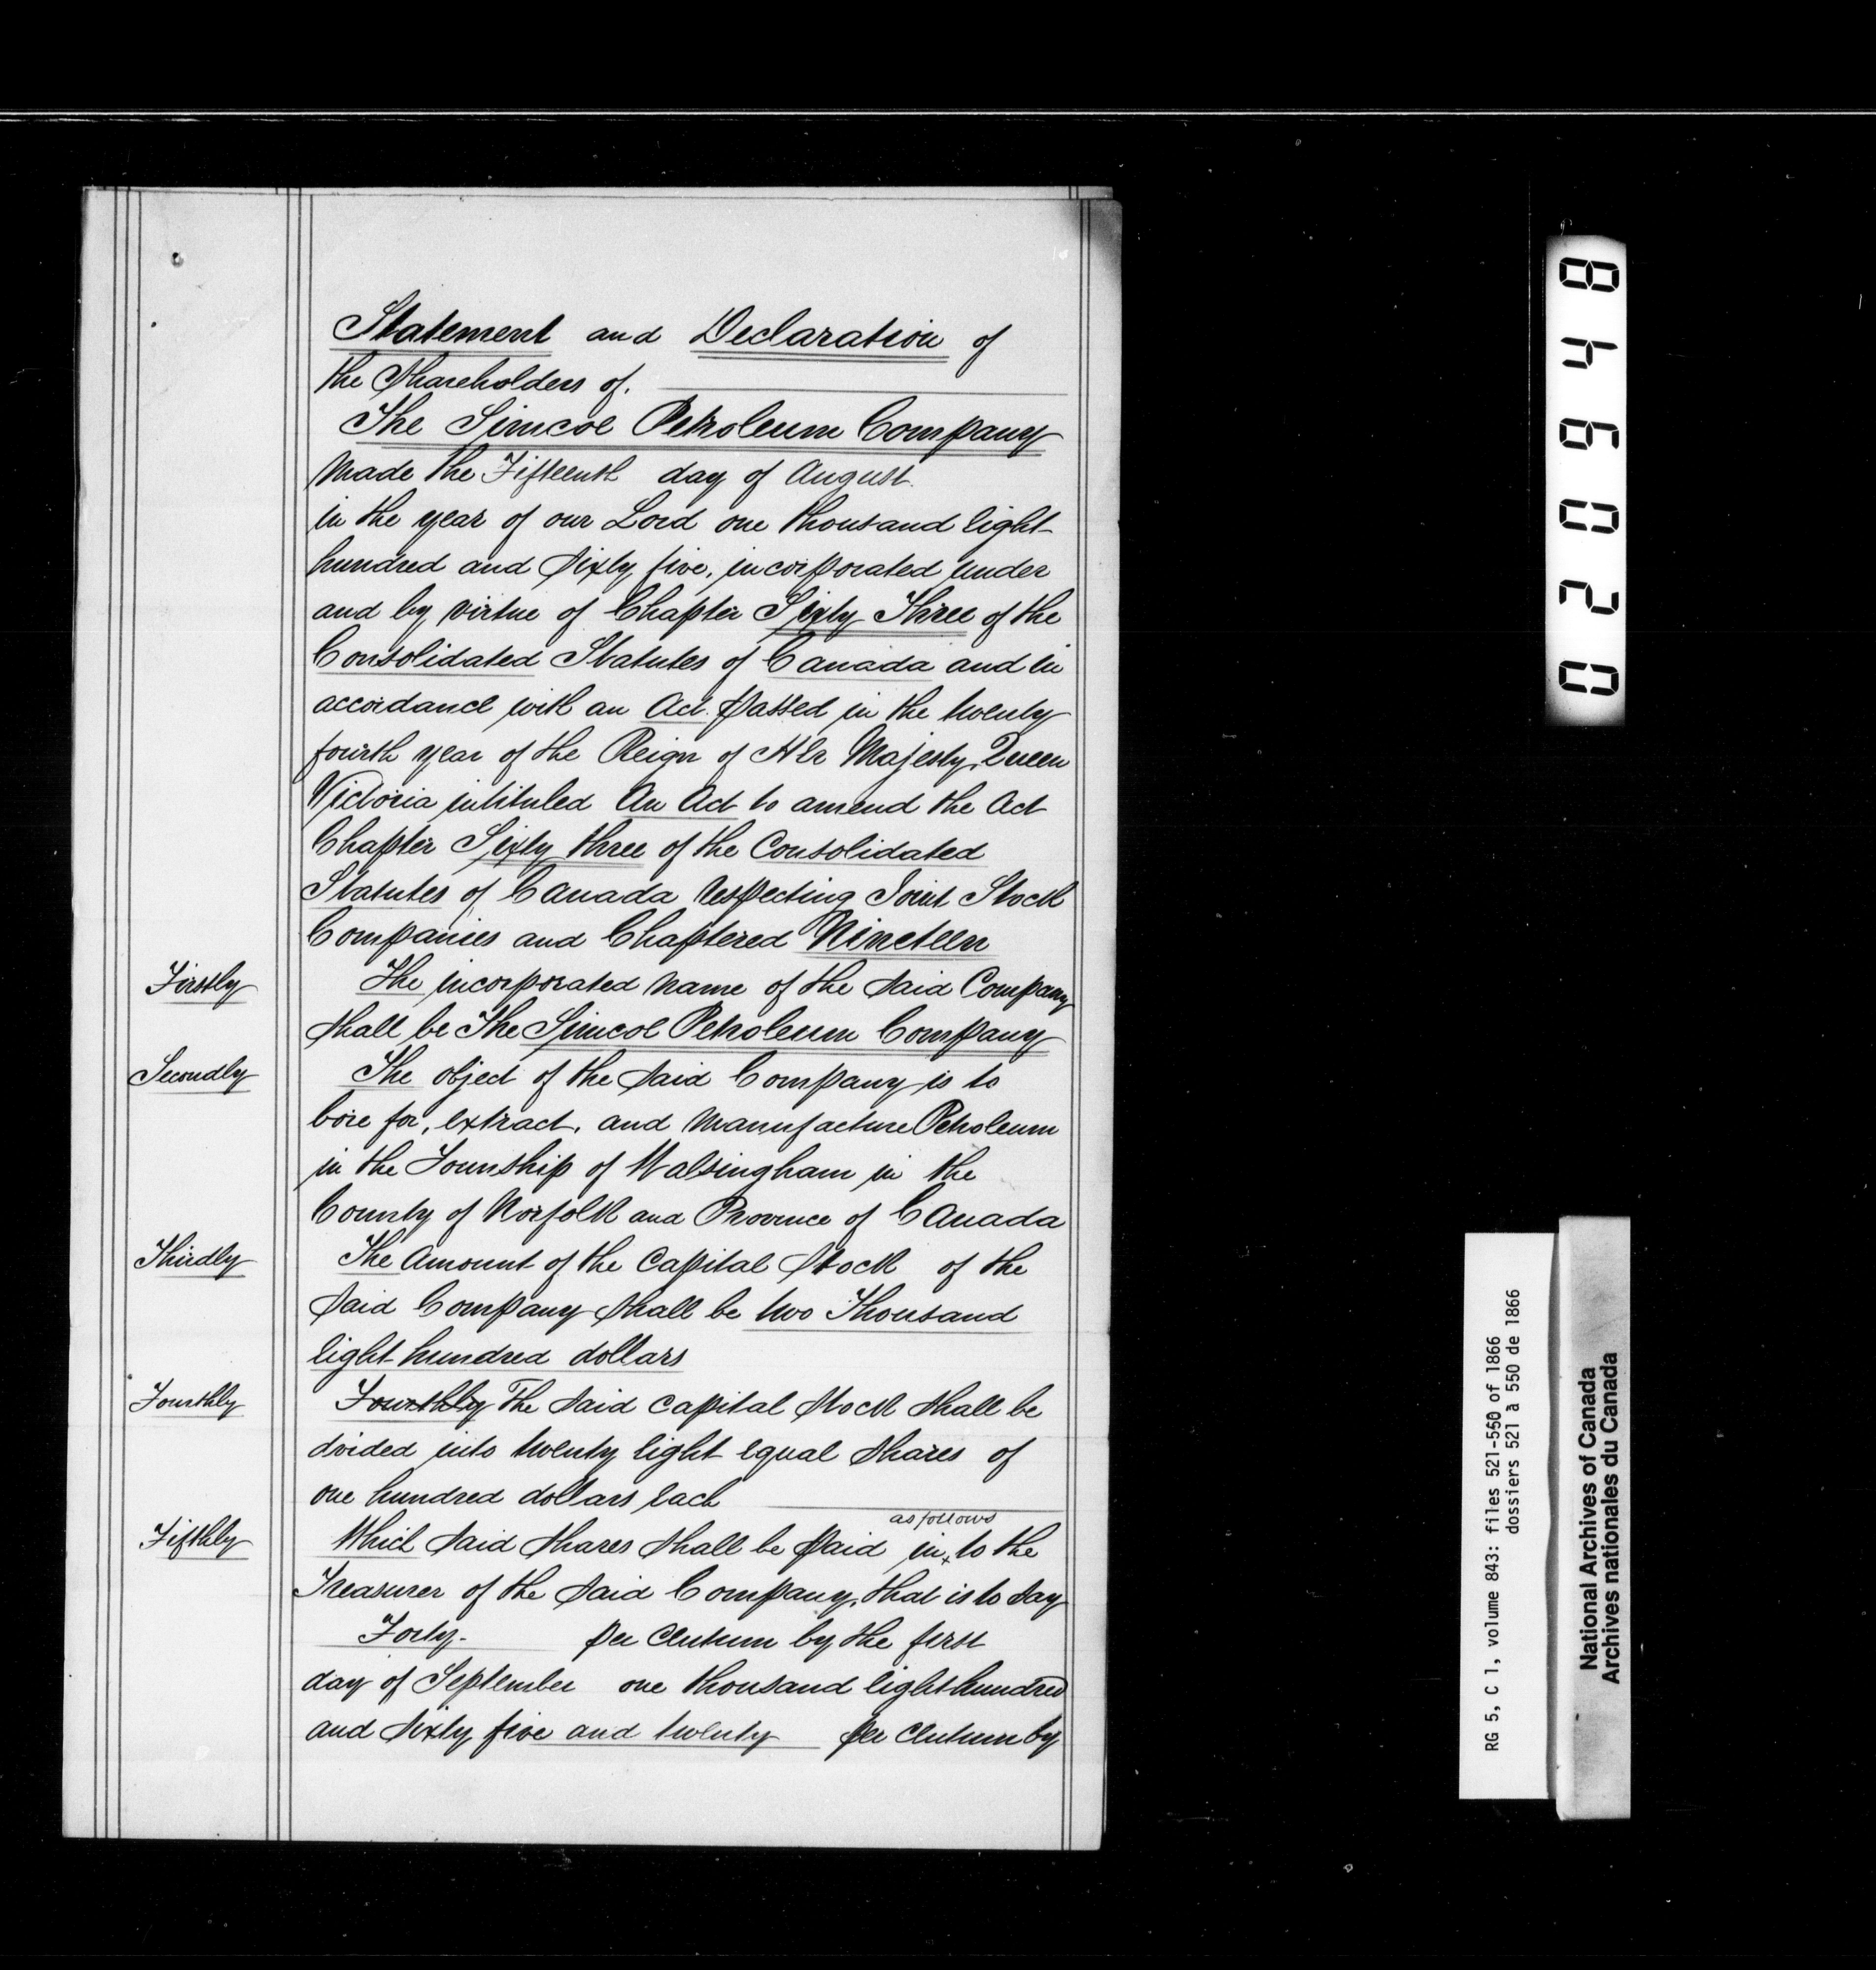 Statement and Declaration of
the Shareholders of.
The Simcoe Petroleum Company
Made the Fifteenth day of August.
in the year of our Lord one thousand eight
hundred and sixty five, incorporated under
and by virtue of Chapter Sixty Three of the
Consolidated Statutes of Canada and in
accordance with an Act. passed in the twenty
fourth year of the Reign of Her Majesty Queen
Victoria intituled An Act to amend the Act
Chapter Sixty three of the Consolidated
Statutes of Canada respecting Joint Stock
Companies and Chaptered Nineteen
Firstly The incorporated name of the said Company
shall be The Simcoe Petroleum Company
Secondly The object of the said Company is to
bore for, extract, and Manufacture Petroleum
in the Township of Walsingham in the
County of Norfolk and Province of Canada
Thirdly The Amount of the Capital Stock of the
said Company shall be two Thousand
eight hundred dollars
Fourthly Fourthly The said Capital Stock shall be
divided into twenty eight equal shares of
one hundred dollars each
as follows
Fifthly Which said shares shall be paid in x to the
Treasurer of the said Company, that is to say
Forty- per Centum by the first
day of September one thousand eight hundred
and sixty five and twenty per Centum by
020648
RG 5, C 1, volume 843: files 521-550 of 1866
dossiers 521 à 550 de 1866
National Archives of Canada
Archives nationales du Canada